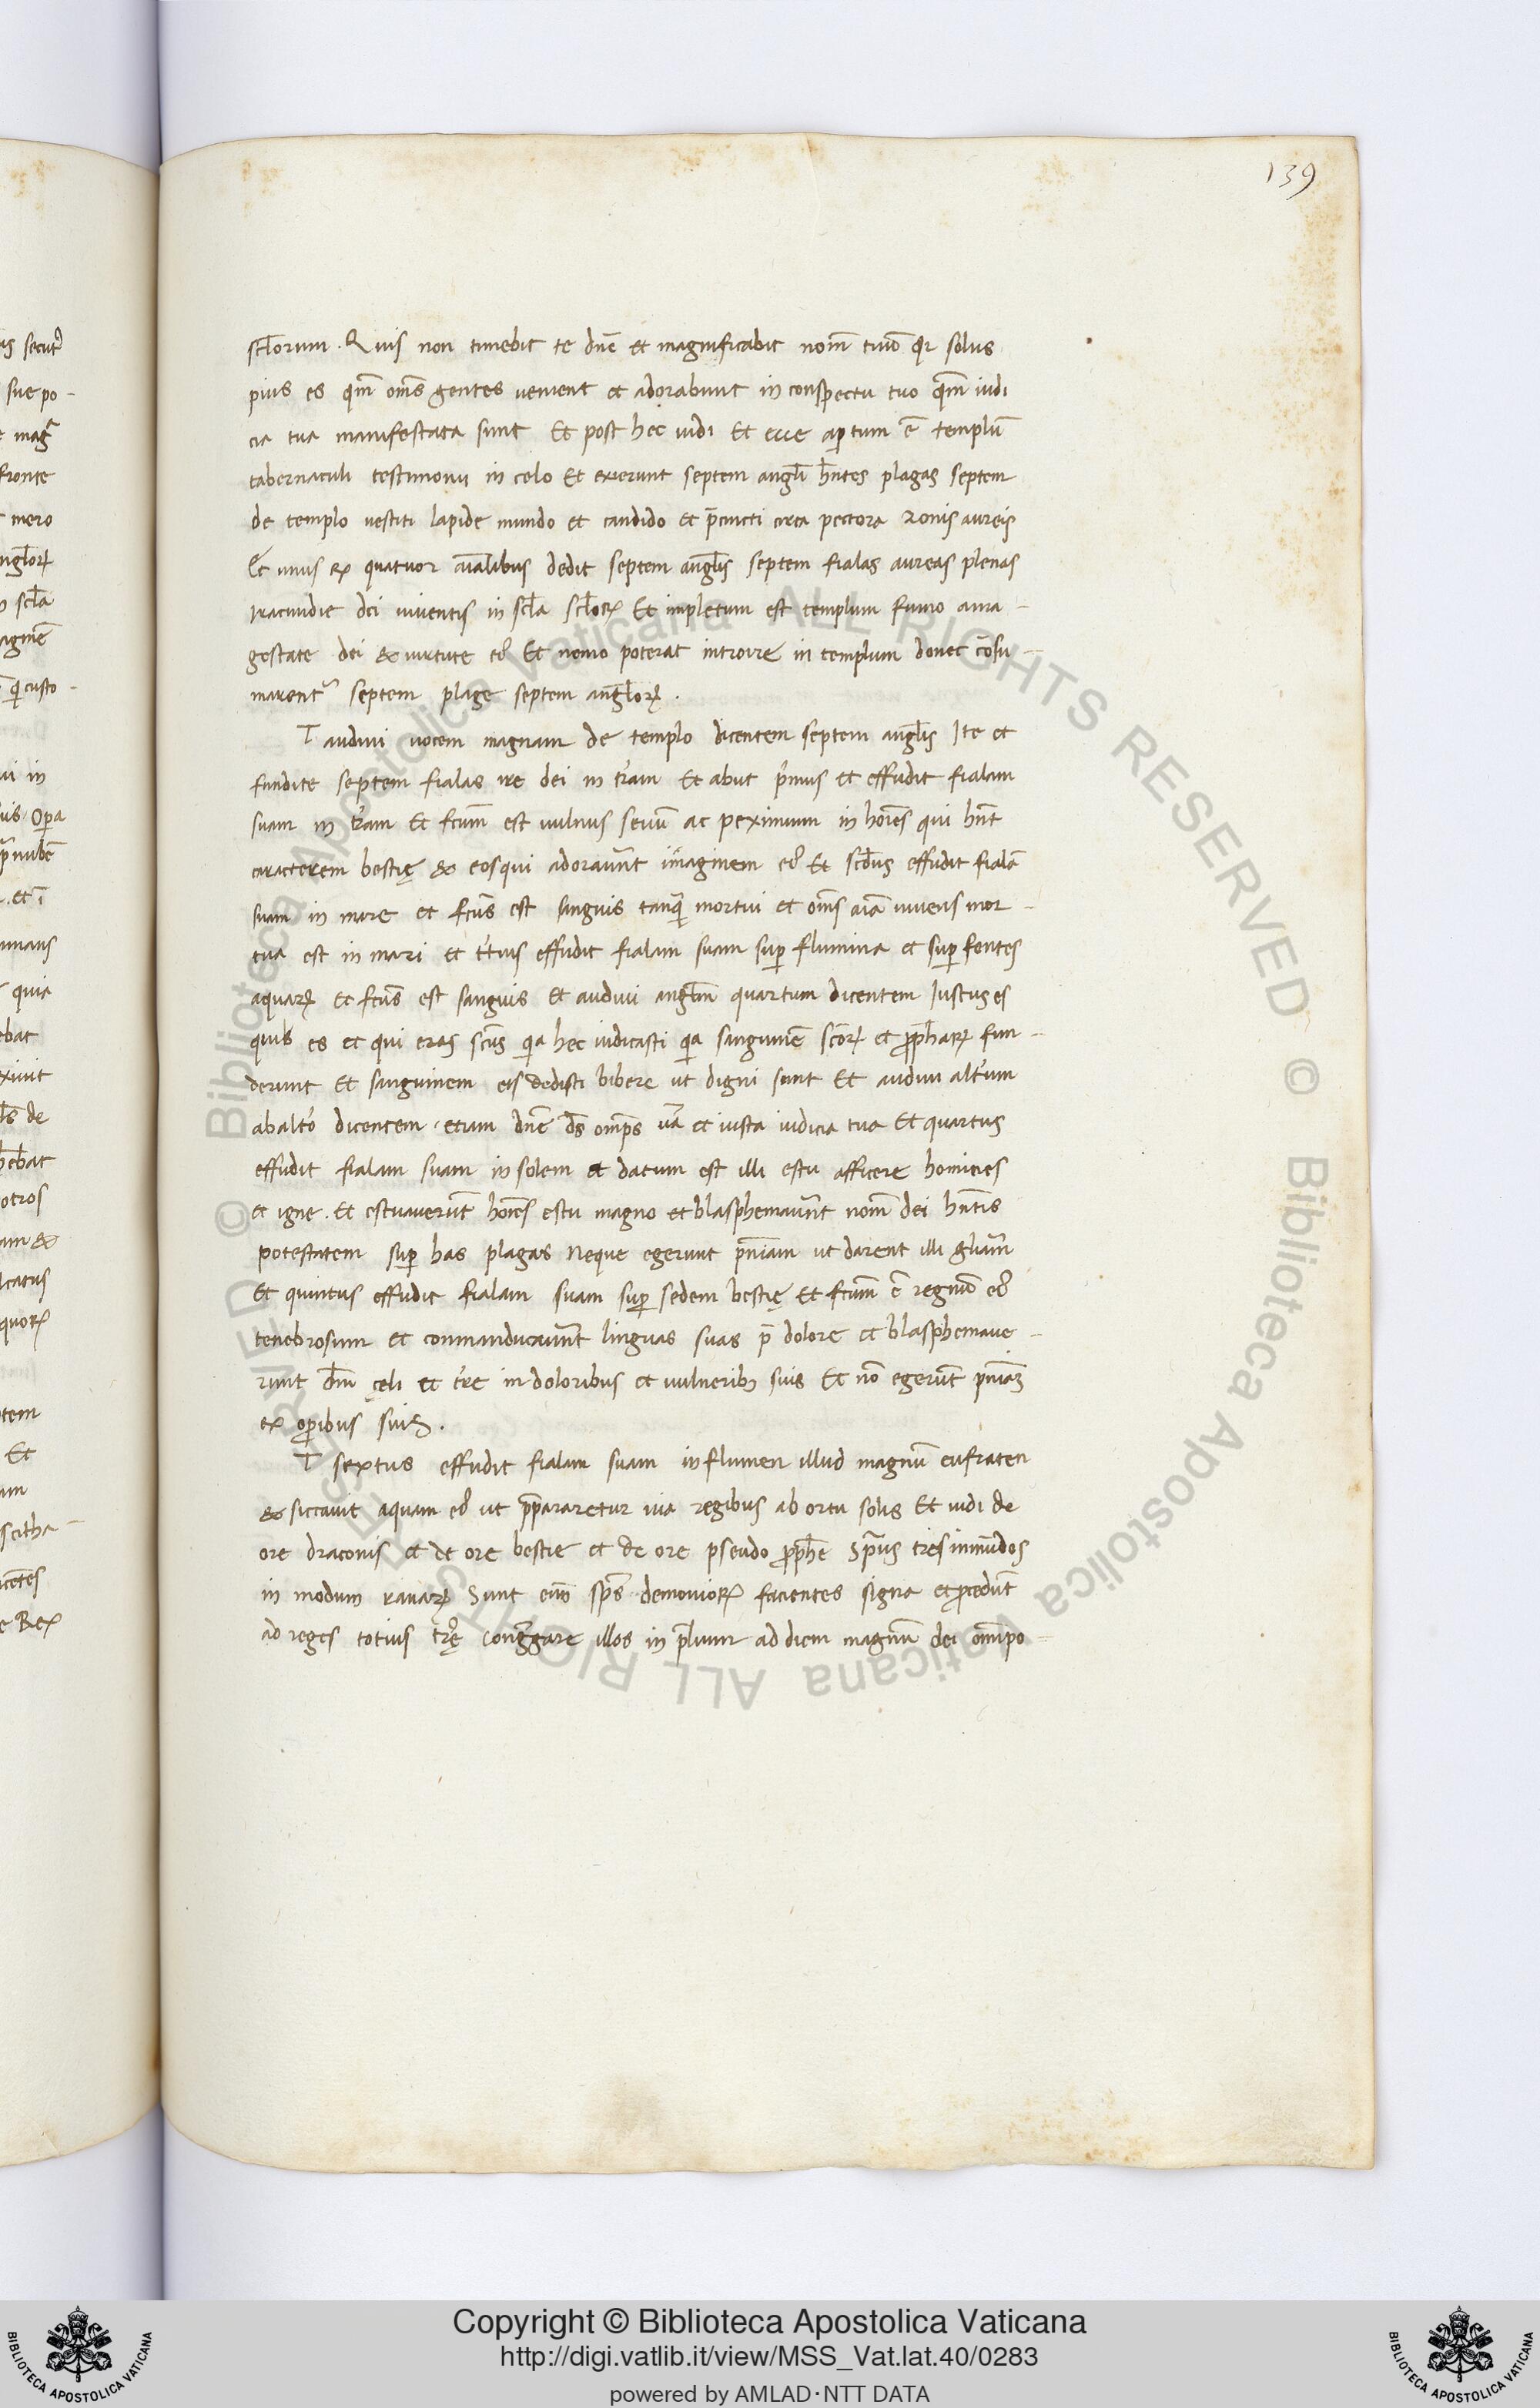 139
scl̄orum. Quis non timebit te dn̄e et magnificabit nom̄ tuū qr̄ solus
pius es qm̄ om̄s gentes uenient et adorabunt in conspectu tuo qm̄ iudi
cia tua manifestata sunt Et post hec uidi Et ecce aꝑtum ē templū
tabernaculi testimonii in celo Et exierunt septem angl̄i hn̄tes plagas septem
de templo uestiti lapide mundo et candido et p̄cincti circa pectora zonis aureis
Et unus ex quatuor aīalibus dedit septem angl̄is septem fialas aureas plenas
iracundie dei uiuentis in scl̄a scl̄oꝝ Et impletum est templum fumo a ma-
gestate dei & uirtute eꝰ Et nemo poterat introire in templum donec cōsu-
marentᷣ septem plage septem angl̄oꝝ.
T audiui uocem magnam de templo dicentem septem angl̄is Ite et
fundite septem fialas ire dei in tr̄am Et abiit p̄mus et effudit fialam
suam in tr̄am Et fc̄um est uulnus seuū ac peximum in hoīes qui hn̄t
caracterem bestię & eos qui adorauer̄nt imaginem eꝰ Et scd̄us effudit fialā
suam in mare et fc̄us est sanguis tanq̄ mortui et om̄s aīa uiuens mor-
tua est in mari et tr̄tius effudit fialam suam suꝑ flumina et suꝑ fontes
aquaꝝ Et fc̄us est sanguis Et audiui angl̄m quartum dicentem Iustus es
qui es et qui eras sc̄us qa hec iudicasti qa sanguinē sc̄oꝝ et ꝓph̄aꝝ fun-
derunt Et sanguinem eis dedisti bibere ut digni sunt Et audiui altr̄um
ab altr̄o dicentem. etiam dn̄e ds̄ omp̄s ua̅ et iusta iudicia tua Et quartus
effudit fialam suam in solem et datum est illi estu afficere homines
et igne. Et estuauerūt hoīes estu magno et blasphemauer̄nt nom̄ dei hn̄tis
potestatem suꝑ has plagas Neque egerunt pn̄iam ut darent illi gl̄iam
Et quintus effudit fialam suam suꝑ sedem bestię Et fc̄um ē regnū eꝰ
tenebrosum et conmanducauer̄nt linguas suas p̄ dolore et blasphemaue-
runt dm̄ cęli et tr̄e in doloribus et uulneribꝫ suis Et nō egerūt pn̄iaꝫ
ex oꝑibus suis.
T sextus effudit fialam suam in flumen illud magnū eufraten
& siccauit aquam eꝰ ut p̄ꝑararetur uia regibus ab ortu solis Et uidi de
ore draconis et de ore bestie et de ore pseudo ꝓphē Sp̄us tres inmūdos
in modum ranaꝝ Sunt enī sp̄s demonioꝝ facientes signa et ꝓcedūt
ad reges totius tr̄ę congr̄gare illos in p̄lium ad diem magnū dei omīpo-
Copyright © Biblioteca Apostolica Vaticana
http://digi.vatlib.it/view/MSS_Vat.lat.40/0283
powered by AMLAD·NTT DATA
BIBLIOTECA APOSTOLICA VATICANA
BIBLIOTECA APOSTOLICA VATICANA
© Biblioteca Apostolica Vaticana ALL RIGHTS RESERVED © Biblioteca Apostolica Vaticana ALL RIGHTS RESERVED